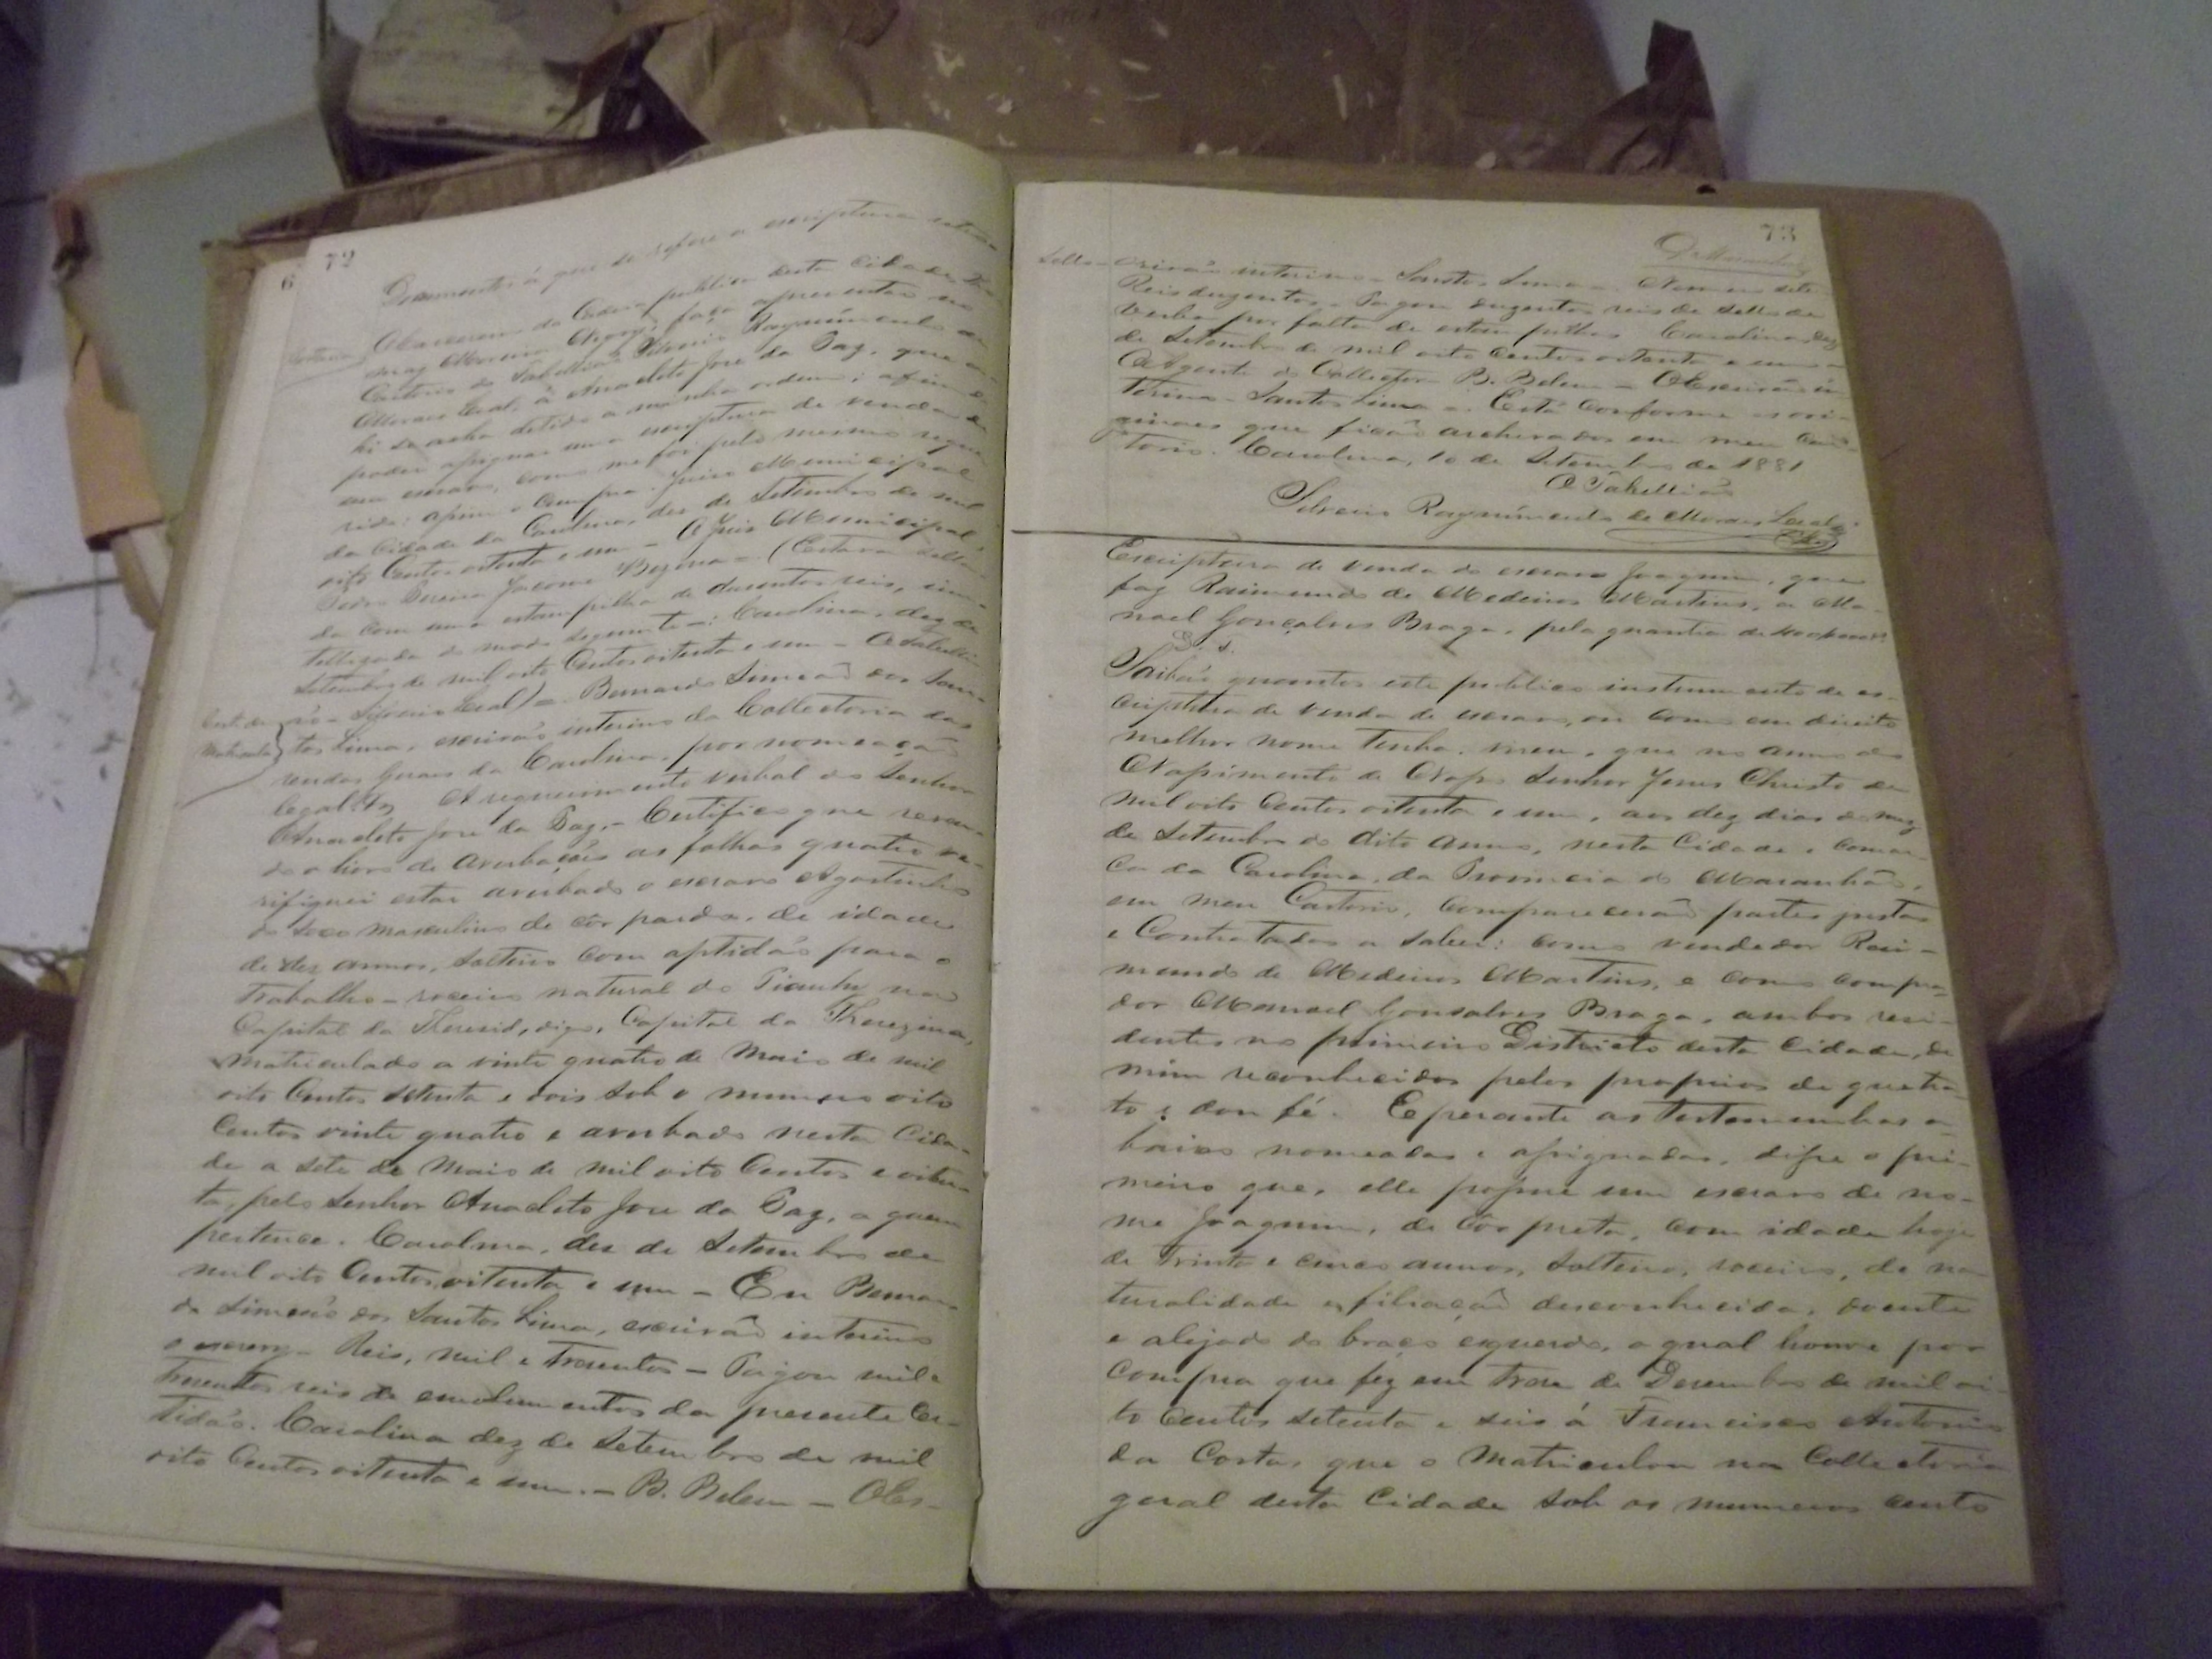 6
72
Documentos á que se refere a escriptura
O Carcereiro da Cadeia publica desta Cidade
faça apresentar no
Cartorio do Tabellião Silverio Raymundo de
Moraes Leal, á Anacleto Jose da Paz, que a-
hi se acha detido a minha ordem; afim de
poder assignar uma escriptura de venda de
um escravo, como me foi pelo mesmo reque-
rido: assim o cumpra. Juiso Municipal
da Cidade da Carolina, dez de Setembro de mil
oito Centos oitenta e um - O Juis Municipal
Pedro Pereira Jacome Bezerra = (Estava sella-
da com uma estampilha de dusentos reis, inu-
tellizada do modo seguinte: Carolina, dez de
Setembro de mil oito Centos oitenta e um - O Tabelli-
Cert. de
Matricula
ão - Silverio Leal) =. Bernardo Simeão dos San-
tos Lima, escrivão interino da Collectoria das
rendas Geraes da Carolina, por nomeação
legal. A requerimento verbal do Senhor
Anacleto Jose da Paz, - Certifico que reven-
do o livro de Averbações as folhas quatro ve-
rifiquei estar averbado o escravo Agostinho
do sexo masculino de côr parda, de idade
de dez annos, solteiro com aptidão para o
trabalho - roceiro natural do Piauhy na
Capital da Theresid, digo, Capital da Therezina,
matriculado a vinte quatro de Maio de mil
oito Centos setenta e dois sob o numero oito
Centos vinte quatro e averbado nesta Cida-
de a sete de Maio de mil oito Centos e oiten-
ta, pelo Senhor Anacleto Jose da Paz, a quem
pertence. Carolina, dez de Setembro de
mil oito Centos oitenta e um - Eu Bernar-
do Simeão dos Santos Lima, escrivão interino
o escrevy - Reis, mil e tresentos - Pagou mil e
tresentos reis de emolumentos da presente Cer-
tidão. Carolina dez de Setembro de mil
oito Centos oitenta e um. - B. Belem - O Es-
73
Sello -
crivão interino - Santos Lima -. Numero sete
Reis duzentos - Pagou duzentos reis de sello de
verba por falta de estampilhas Carolina, dez
de Setembro de mil oito Centos oitenta e um -
O Agente do Collector B. Belem - O Escrivão in-
terino - Santos Lima -. Está conforme os ori-
ginaes que ficão archivados em meu Car-
torio. Carolina, 10 de Setembro de 1881
O Tabellião
Silverio Raymundo de Moraes Leal
Escriptura de venda do escravo Joaquim, que
faz Raimundo de Medeiros Martins, a Ma-
noel Gonçalves Braga, pela quantia de
S. S.
Saibão quantos este publico instrumento de es-
criptura de venda de escravo, ou como em direito
melhor nome tenha, virem, que no anno do
Nascimento de Nosso Senhor Jesus Christo de
mil oito Centos oitenta e um, aos dez dias do mez
de Setembro do dito anno, nesta Cidade e Comar-
ca da Carolina, da Provincia do Maranhão,
em meu Cartorio, comparecerão partes justas
e Contratadas a saber: como vendedor Rai-
mundo de Medeiros Martins, e como compra-
dor Manoel Gonsalves Braga, ambos resi-
dentes no primeiro Districto desta Cidade, de
mim reconhecidos pelos proprios de que tra-
to e dou fé. E perante as testemunhas a-
baixo nomeadas e assignadas, disse o pri-
meiro que, elle possue um escravo de no-
me Joaquim, de Côr preta, com idade hoje
de trinta e cinco annos, solteiro, roceiro, de na-
turalidade e filiação desconhecida, doente
e alejado do braço esquerdo, o qual houve por
compra que fez em treze de Desembro de mil oi-
to Centos setenta e seis á Francisco Antonio
da Costa, que o Matriculou na Collectoria
geral desta Cidade sob os numeros cento